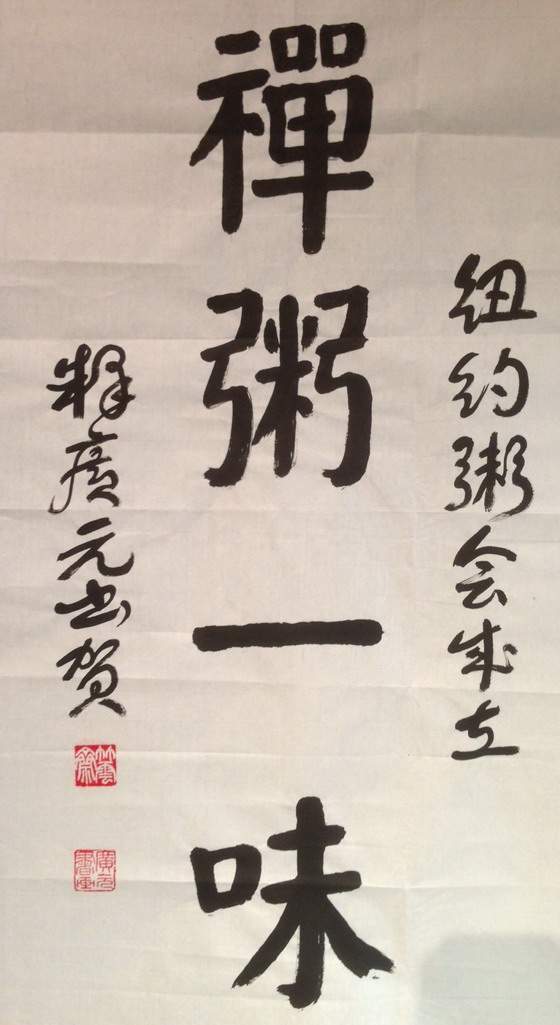 紐約粥会成立
禪粥一味
釋廣元书賀